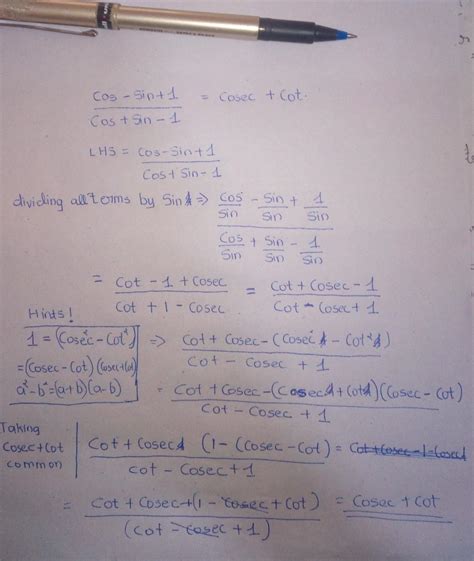 Cos - Sin + 1 / Cos + Sin - 1 = Cosec + Cot.
LHS = Cos - Sin + 1 / Cos + Sin - 1
dividing all terms by Sin ⇒ Cos/Sin - Sin/Sin + 1/Sin / Cos/Sin + Sin/Sin - 1/Sin
= Cot - 1 + Cosec / Cot + 1 - Cosec = Cot + Cosec - 1 / Cot - Cosec + 1
Hints!
1 = (Cosec² - Cot²) ⇒ Cot + Cosec - (Cosec² - Cot²) / Cot - Cosec + 1
= (Cosec - Cot)(Cosec + Cot)
a² - b² = (a+b)(a-b)
= Cot + Cosec - (Cosec + Cot)(Cosec - Cot) / Cot - Cosec + 1
Taking
Cosec + Cot
common
Cot + Cosec (1 - (Cosec - Cot) / Cot - Cosec + 1 = Cot + Cosec - 1 = Cosec
= Cot + Cosec + (1 - Cosec + Cot) / (Cot - Cosec + 1) = Cosec + Cot